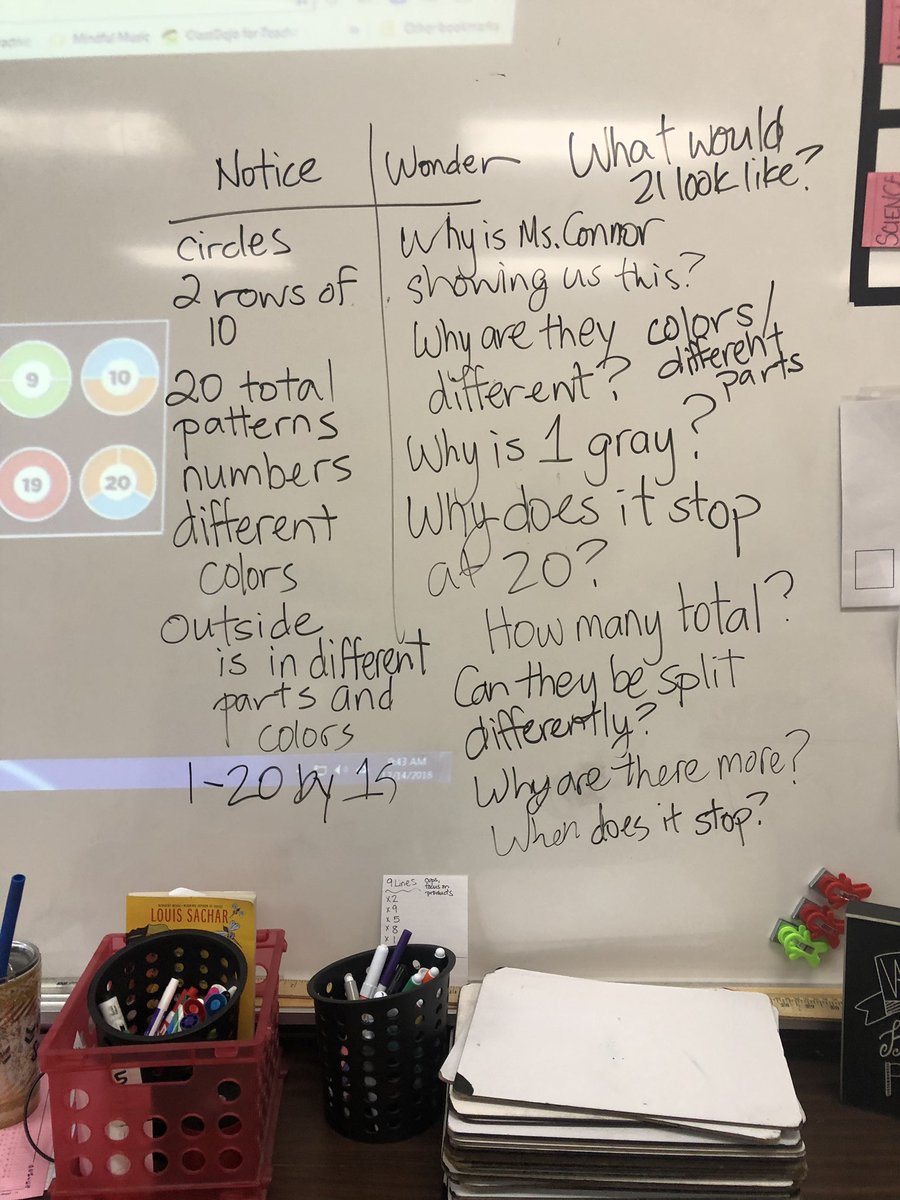 Mindful Music
ClassDojo for Teach
Other bookmarks
Notice
Wonder
What would
21 look like?
circles
2 rows of
10
20 total
patterns
numbers
different
colors
outside
is in different
parts and
colors
1-20 by 1s
Why is Ms. Connor
showing us this?
Why are they
different?
colors/
different
parts
Why is 1 gray?
Why does it stop
at 20?
How many total?
Can they be split
differently?
Why are there more?
When does it stop?
9
10
19
20
SCIENCE
9 Lines
x2
x9
x5
x8
oops,
focus on
products
LOUIS SACHAR
5